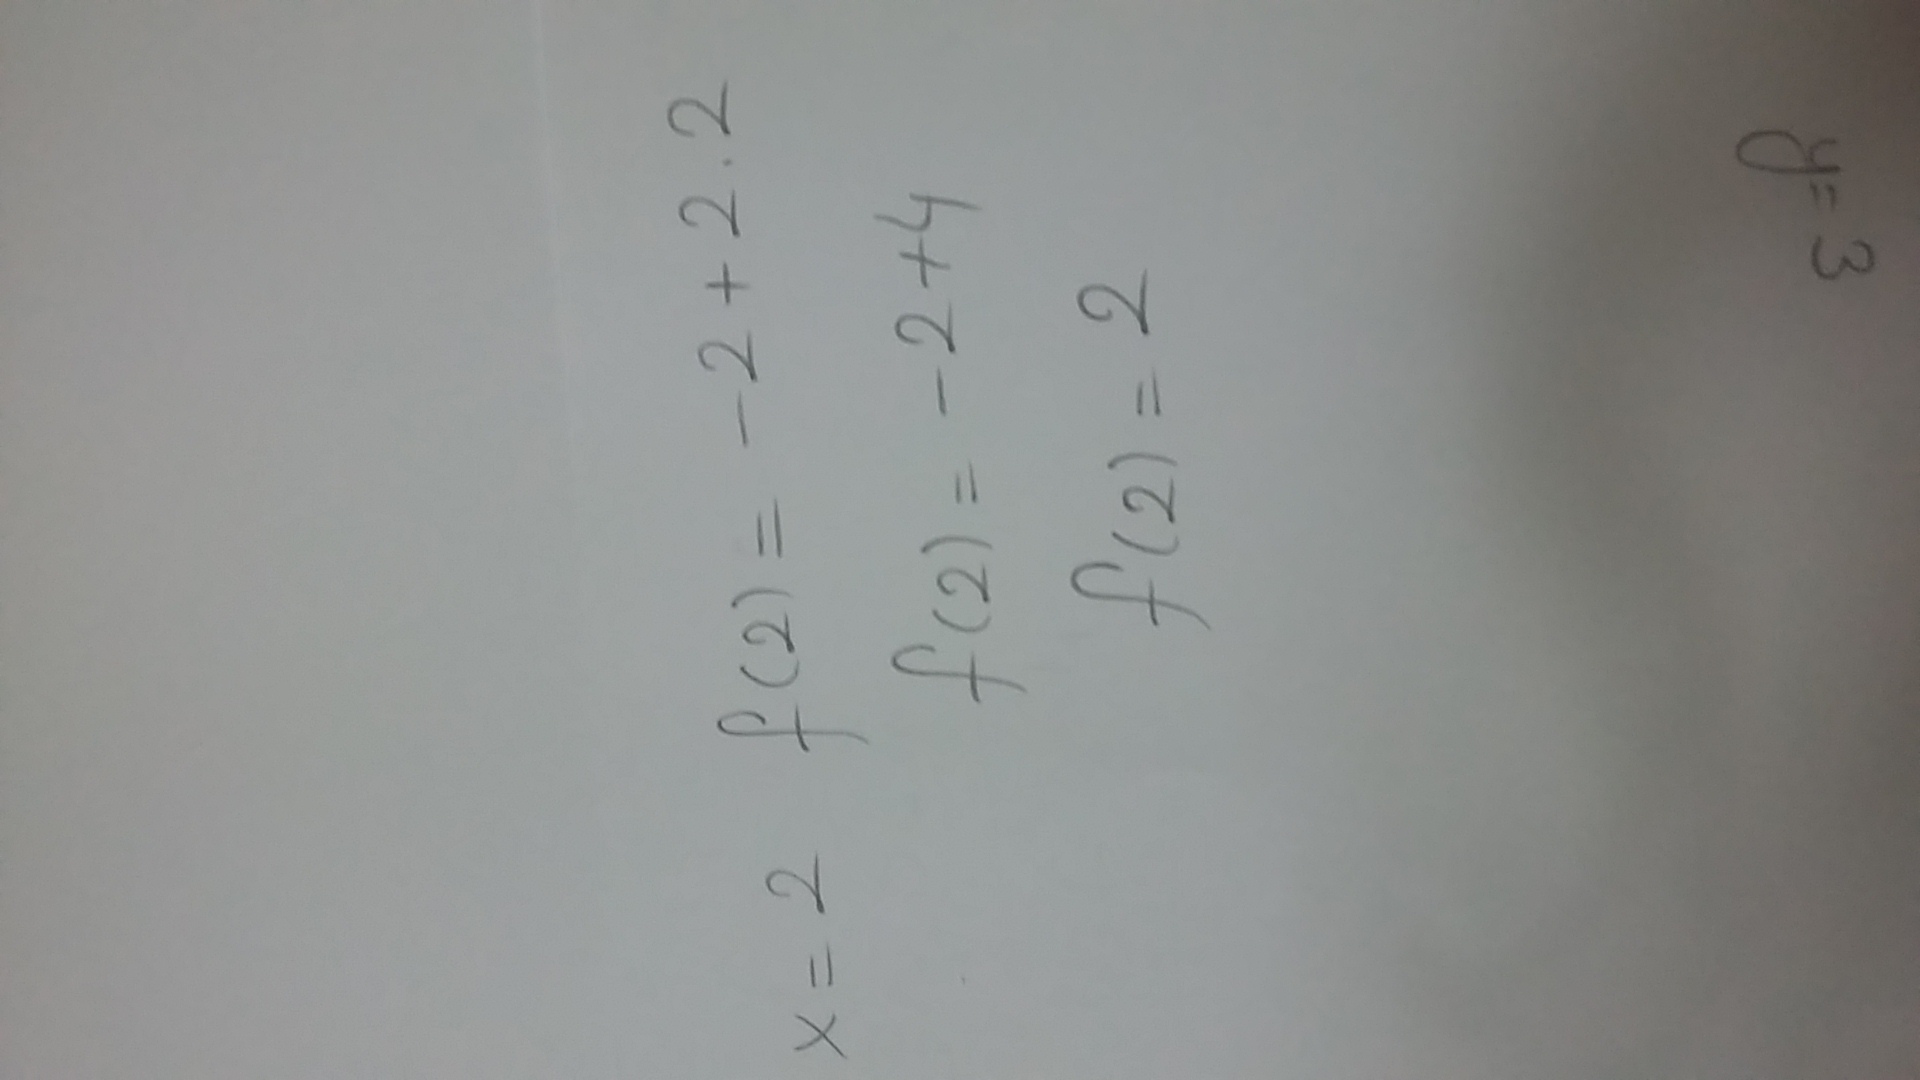 x = 2 f(2) = -2 + 2.2
f(2) = -2 +4
f(2) = 2
y= 3